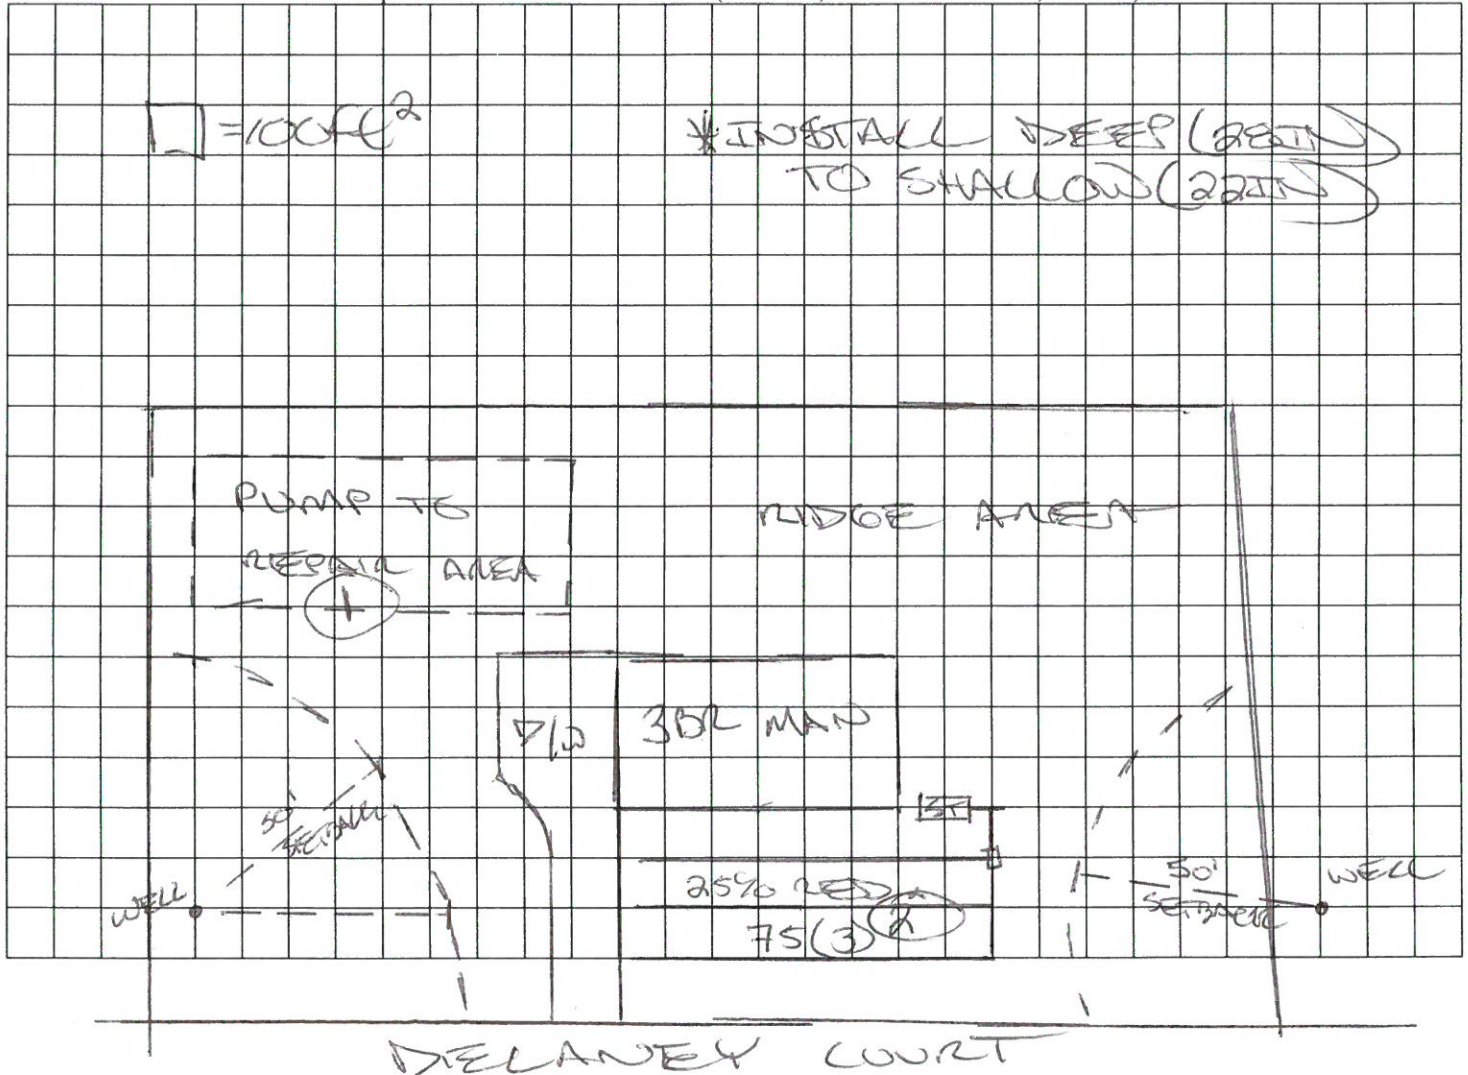 =100ft²
*INSTALL DEEP (28IN)
TO SHALLOW (22IN)
PUMP TO
REPAIR AREA
RIDGE AREA
D/W
3BR MAN
ST
50'
SETBACK
25% RED
75(3) 2
WELL
50'
SETBACK
WELL
DELANEY COURT